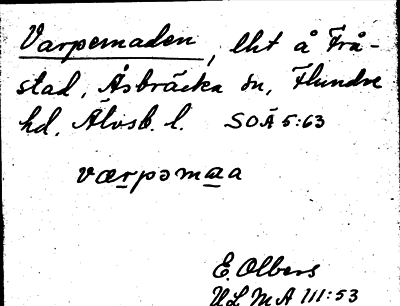 Varpemaden, lht å Frå-
stad, Åsbräcka sn, Flundre
hd, Älvsb. l. SOÄ 5:63
værpəmaa
E. Olbers
ULMA 111:53